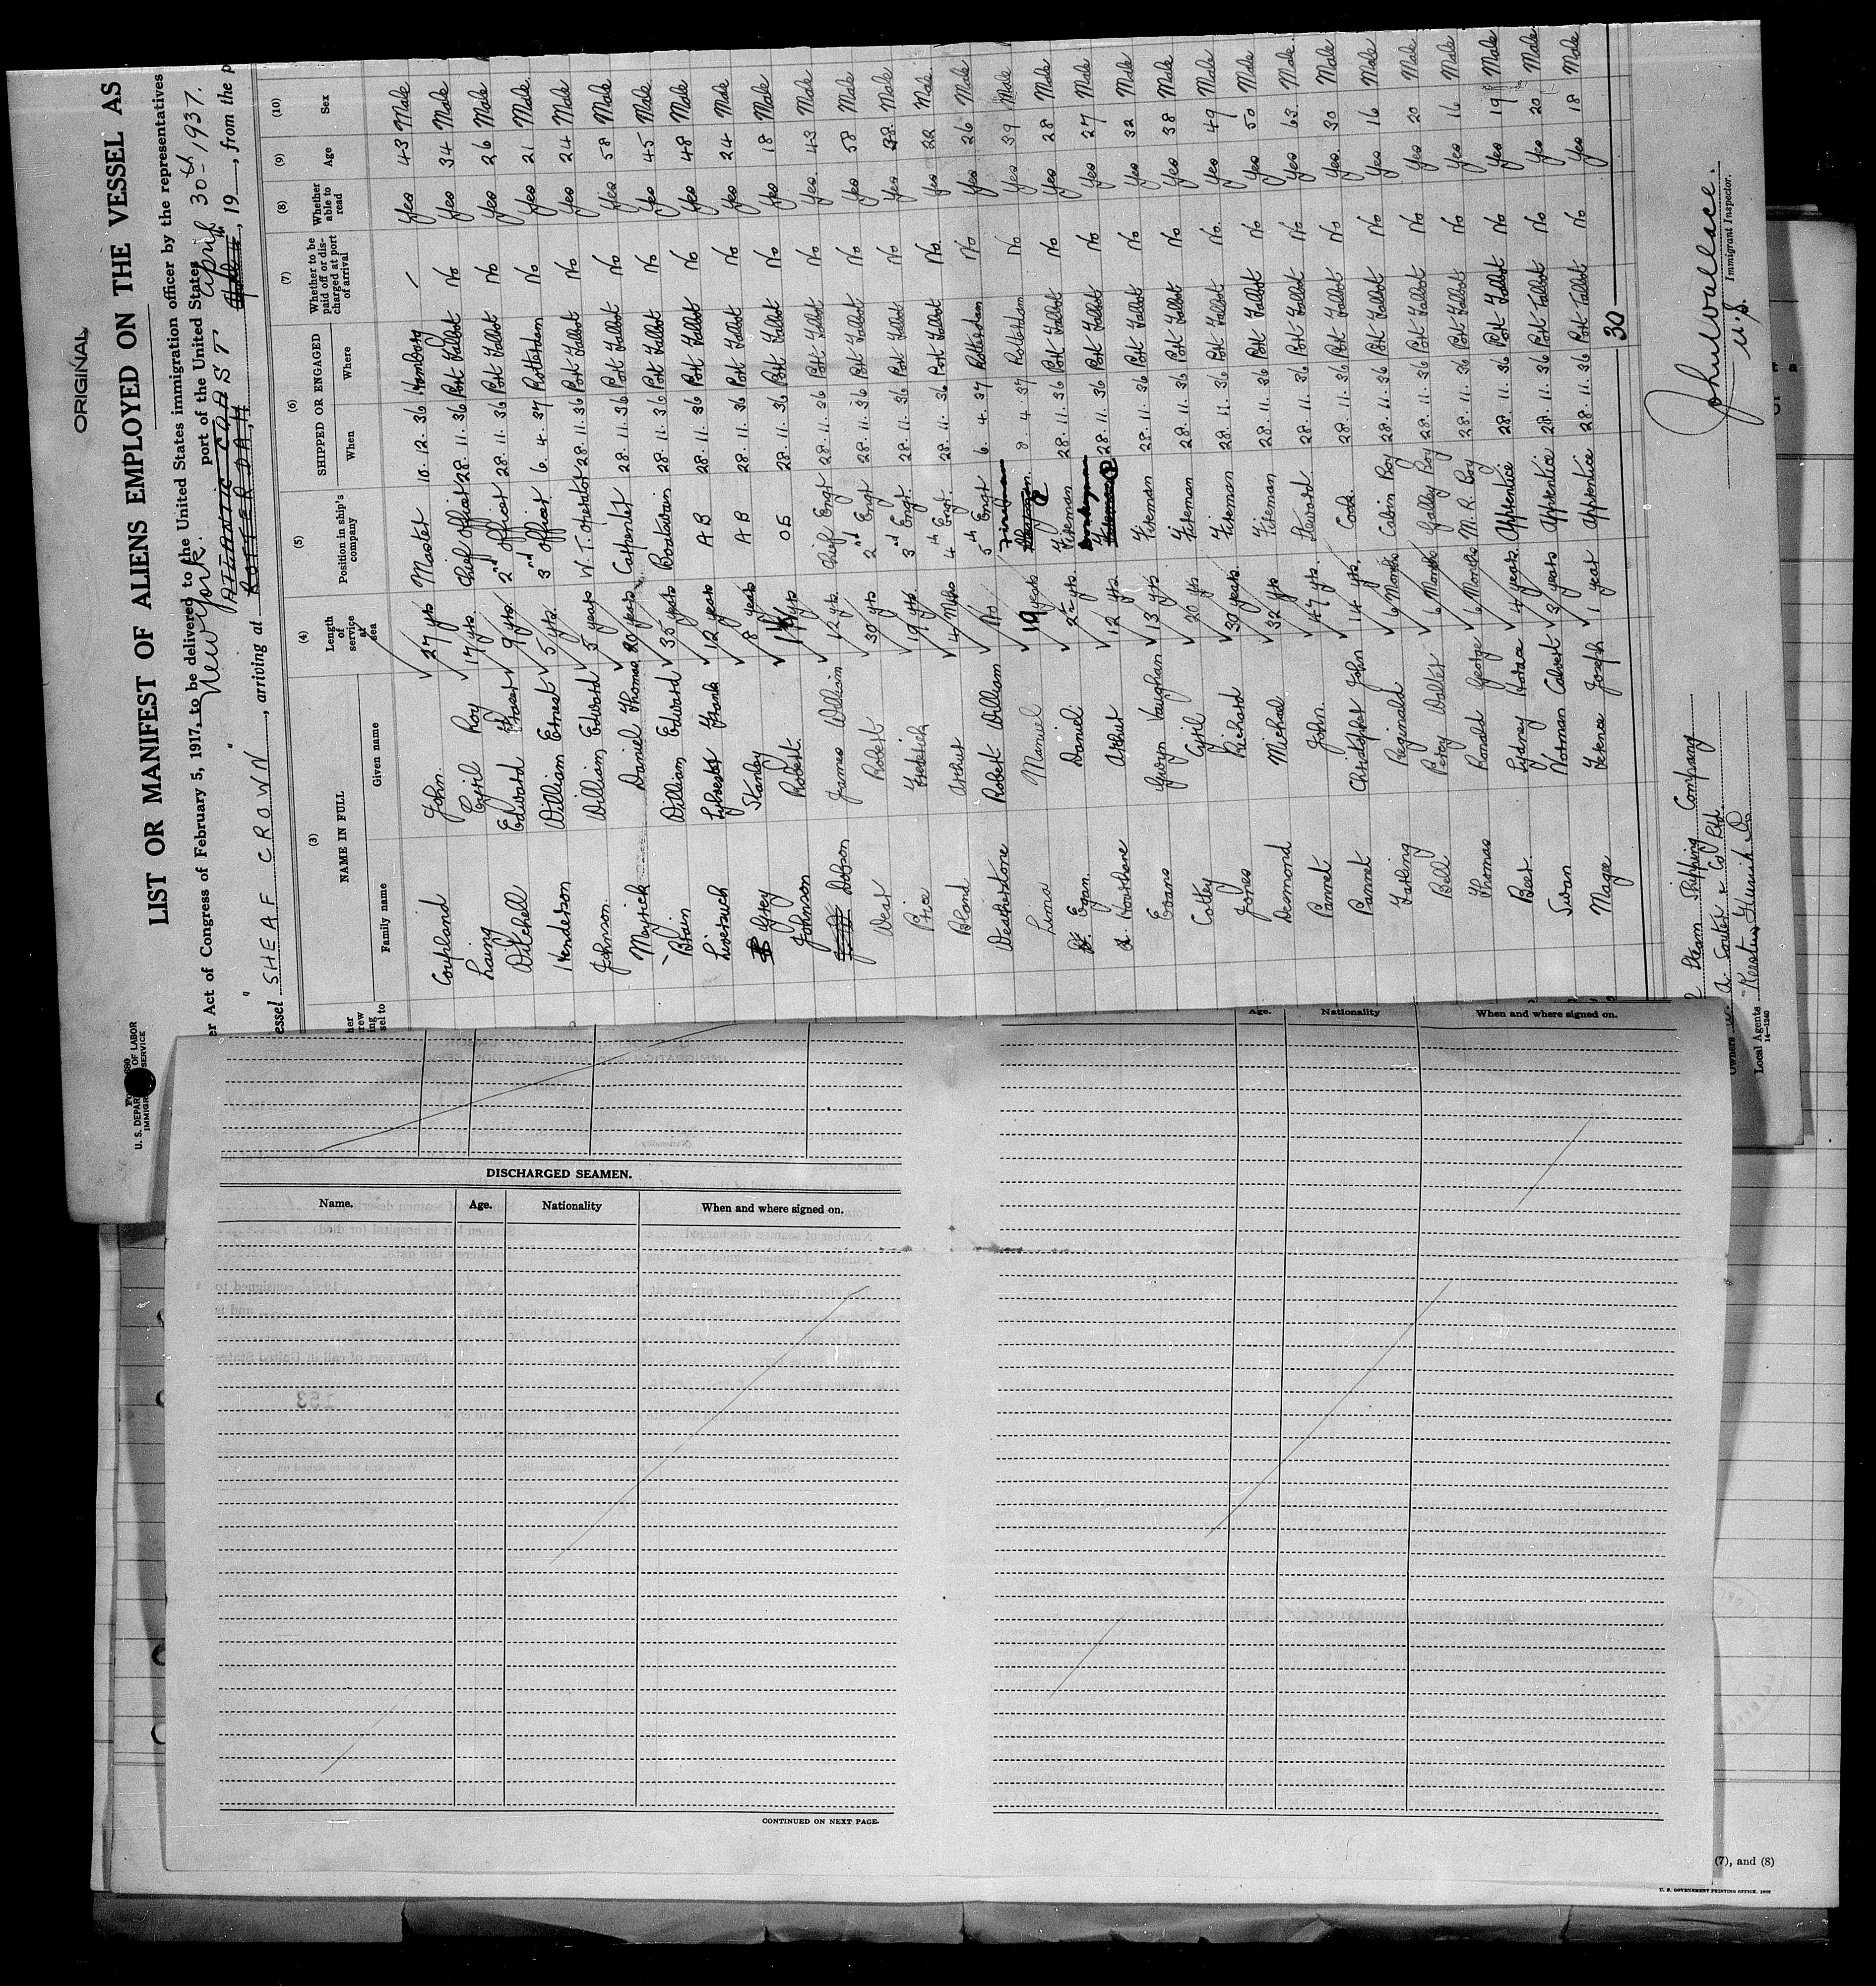 ORIGINAL
LIST OR MANIFEST OF ALIENS EMPLOYED ON THE VESSEL AS
er Act of Congress of February 5, 1917, to be delivered to the United States immigration officer by the representatives
New York. port of the United States April 30th 1937.
ATLANTIC COAST
essel SHEAF CROWN, arriving at ROTTERDAM, 19, from the p
(3) (4) (5) (6) (7) (8) (9) (10)
NAME IN FULL Length of service at sea Position in ship's company SHIPPED OR ENGAGED Whether to be paid off or discharged at port of arrival Whether able to read Age Sex
Family name Given name When Where
Coupland John. 27 yrs Master 10. 12. 36 Hamburg / Yes 43 Male
Laing Cyril Roy 17 yrs. Chief Officer 28. 11. 36 Port Talbot No Yes 34 Male
Mitchell Edward Fraser 9 yrs 2nd Officer 28. 11. 36 Port Talbot No Yes 26 Male
Henderson William Ernest 5 yrs. 3rd Officer 6. 4. 37 Rotterdam No Yes 21 Male.
Johnson. William Edward 5 years W. T. Operator 28. 11. 36 Port Talbot No Yes 24 Male
Meyrick Daniel Thomas 20 years Carpenter 28. 11. 36 Port Talbot No Yes 58 Male
Brain William Edward 35 yrs Boatswain 28. 11. 36 Port Talbot No Yes 45 Male.
Liversuch Sylvester Frank 12 years A B 28. 11. 36 Port Talbot No Yes 48 Male
Grey Stanley 8 years A B 28. 11. 36 Port Talbot No Yes 24 Male
Johnson Robert. 1 yrs OS 28. 11. 36 Port Talbot No Yes 18 Male
Dobson James William 12 yrs. Chief Engr 28. 11. 36 Port Talbot No Yes 43 Male
Wear Robert 30 yrs 2nd Engr 28. 11. 36 Port Talbot No Yes 58 Male
Price Frederick 19 yrs. 3rd Engr. 28. 11. 36 Port Talbot No Yes 38 Male
Bland Arthur 4 Mths 4th Engr. 28. 11. 36 Port Talbot No. Yes 22 Male.
Weatherstone Robert William No 5th Engr 6. 4. 37 Rotterdam No Yes 26 Male
Lima Manuel 19 years Fireman 8. 4. 37 Rotterdam No Yes 39 Male
E. Egan. Daniel 22 yrs. Fireman 28. 11. 36 Port Talbot No Yes 28 Male
Hawthorne Arthur 12 yrs Donkeyman 28. 11. 36 Port Talbot No Yes 27 Male
Evans Gwyn Vaughan 13 yrs. Fireman 28. 11. 36 Port Talbot No Yes 32 Male
Cottey Cyril 20 yrs. Fireman 28. 11. 36 Port Talbot No Yes 38 Male
Jones Richard 30 years. Fireman 28. 11. 36 Port Talbot No. Yes 49 Male
Desmond Michael 32 yrs Fireman 28. 11. 36 Port Talbot No Yes 50 Male
Pannet John. 47 yrs. Steward. 28. 11. 36 Port Talbot No Yes 63. Male.
Pannet Christopher John 14 yrs. Cook. 28. 11. 36 Port Talbot No Yes. 30 Male
Reginald 6 Months Cabin Boy 28. 11. 36 Port Talbot No Yes 16 Male
Bell Percy Walter 6 Months Galley Boy 28. 11. 36 Port Talbot No Yes 20 Male
Thomas Ronald George 6 Months M. R. Boy 28. 11. 36 Port Talbot No Yes 16 Male
Beer Sydney Horace 4 years. Apprentice 28. 11. 36 Port Talbot No Yes 19 Male
Swan Norman Calvert 3 years Apprentice 28. 11. 36 Port Talbot No Yes 20 Male
Magee Terence Joseph 1 year Apprentice 28. 11. 36 Port Talbot No Yes 18 Male
30
John Wallace.
U.S. Immigrant Inspector.
Steam Shipping Company
Owners W. A. Souter & Co Ltd.
Local Agents
14—1240
U. S. DEPAR OF LABOR
IMMIGR SERVICE
Age. Nationality When and where signed on.
DISCHARGED SEAMEN.
Name. Age. Nationality When and where signed on.
CONTINUED ON NEXT PAGE.
(7), and (8)
U. S. GOVERNMENT PRINTING OFFICE